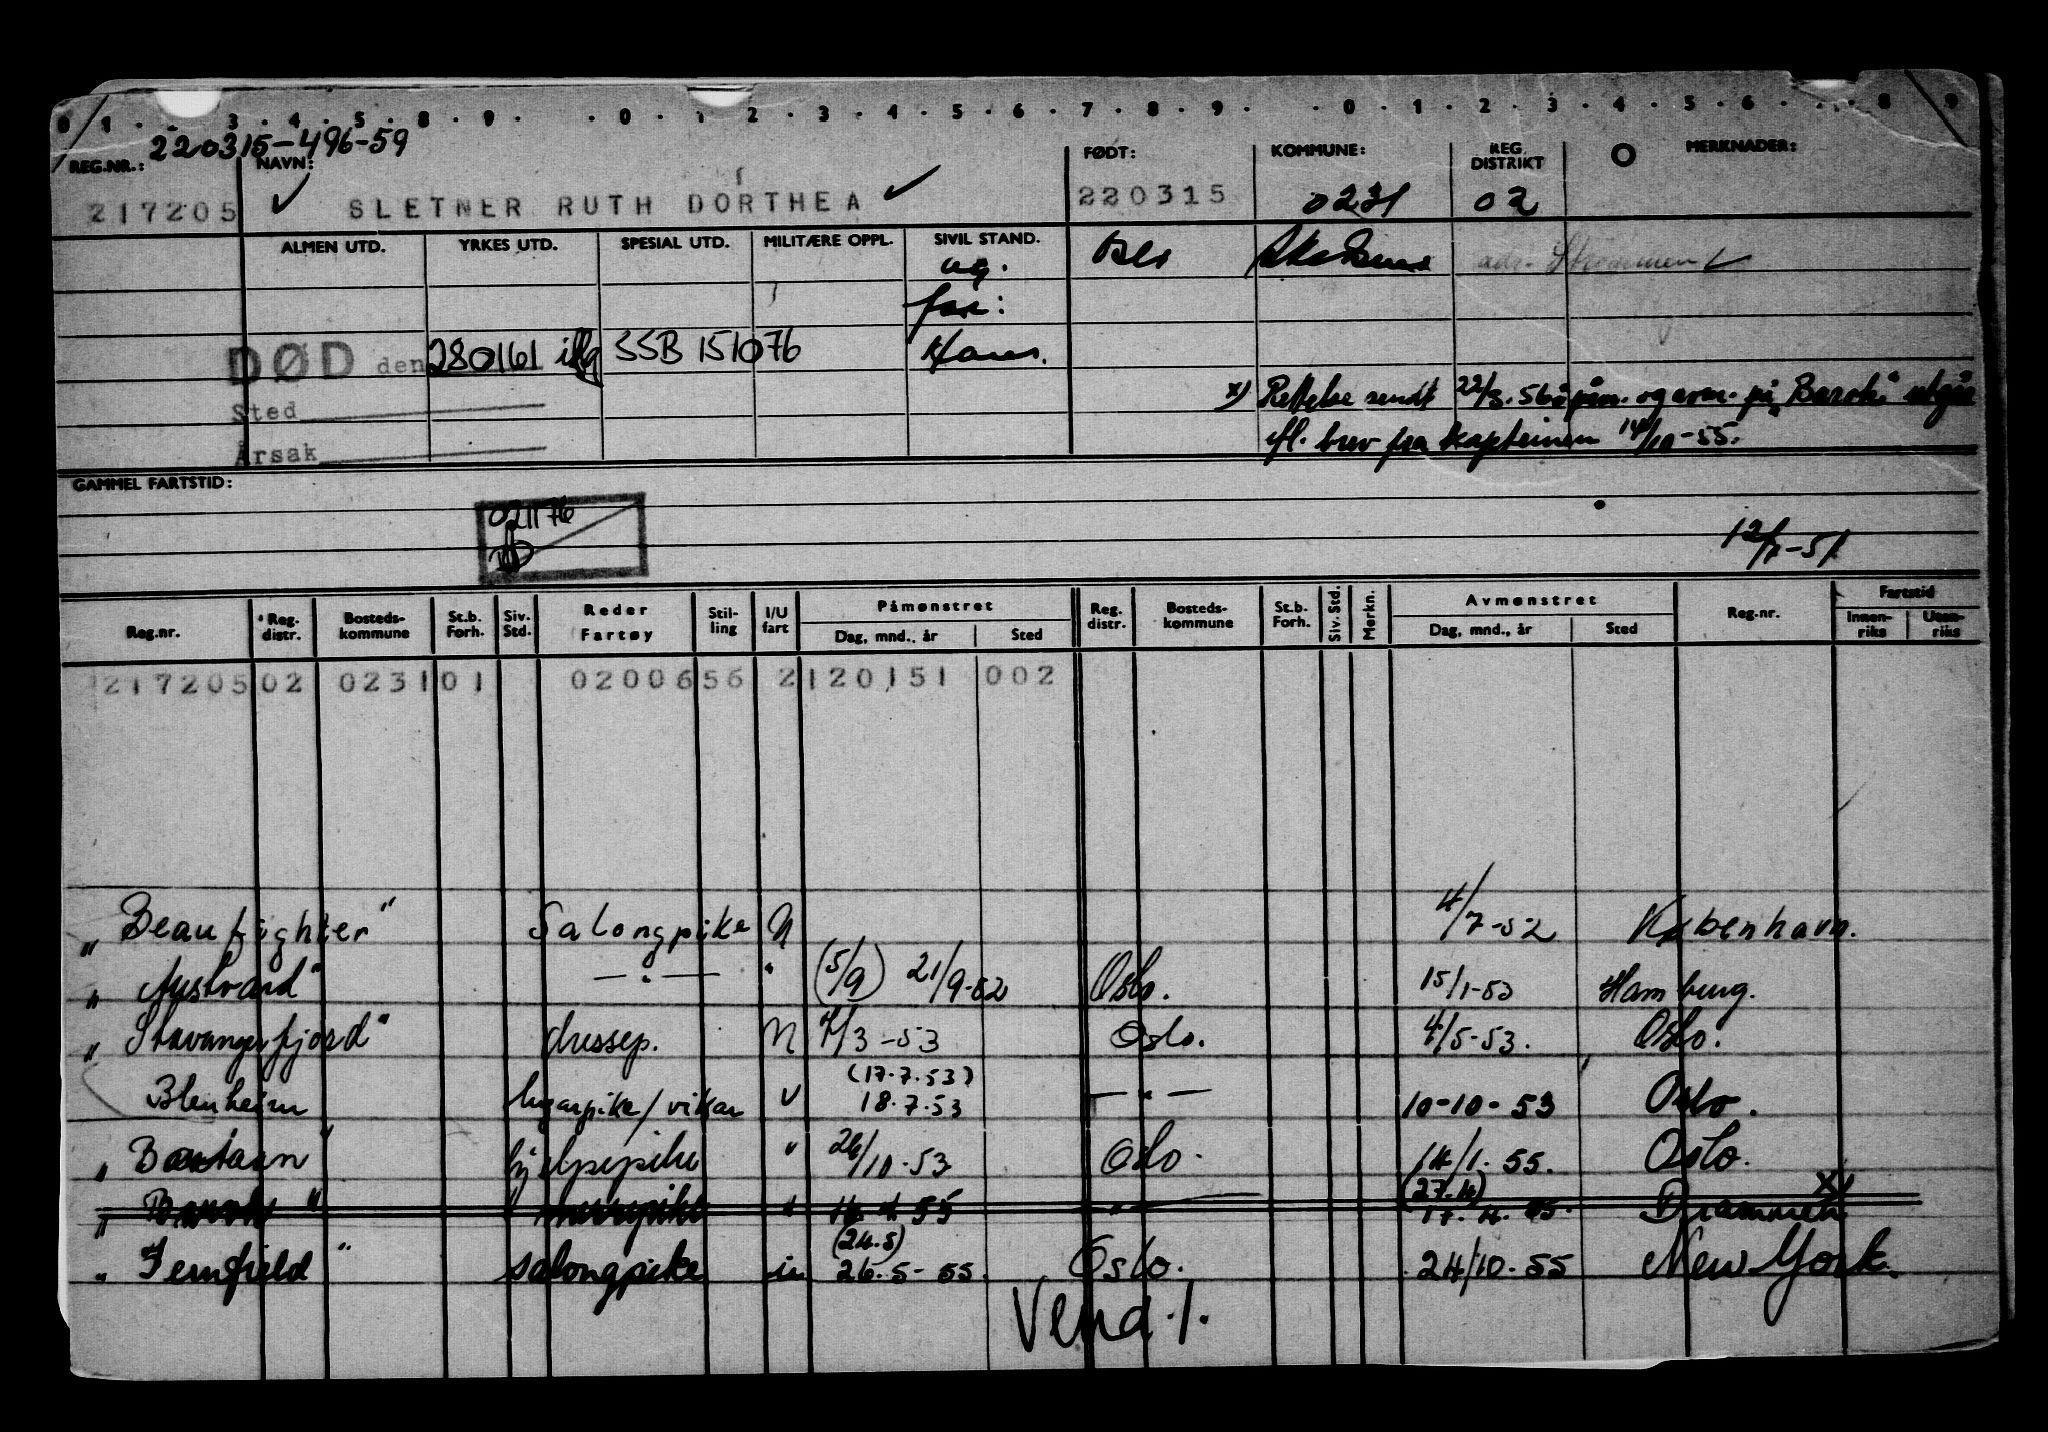 0 1 . 3 . 4 . 5 . 8 . 9 . . 0 . 1 . 2 . 3 . 4 . 5 . 6 . 7 . 8 . 9 . . 0 . 1 . 2 . 3 . 4 . 5 . 6 . 8 9
220315-496-59
REG.NR.: NAVN: FØDT: KOMMUNE: REG. DISTRIKT MERKNADER:
217205 SLETNER RUTH DORTHEA 220315 0231 02
ALMEN UTD. YRKES UTD. SPESIAL UTD. MILITÆRE OPPL. SIVIL STAND.
ug. Oslo Akershus adr. Strømmen
far:
DØD den 280161 iflg SSB 151076 Hans.
Sted
x) Rettelse sendt 22/3.56 påm. og avm. på "Barok" utgår
Årsak
ifl. brev fra kapteinen 14/10-55.
GAMMEL FARTSTID:
021176
12/1-51
Reg.nr. Reg. distr. Bosteds-kommune St.b. Forh. Siv. Std. Reder Fartøy Stil-ling I/U fart Påmønstret Dag, mnd., år Sted Reg. distr. Bosteds-kommune St.b. Forh. Siv. Std. Merkn. Avmønstret Dag, mnd., år Sted Reg.nr. Fartstid Innen-riks Uten-riks
217205 02 0231 01 02006 56 2 120151 002
"Beaufighter" Salongpike N 4/7-52 København.
"Austvard" — " — " (5/9) 21/9-52 Oslo. 15/1-53 Hamburg.
"Stavangerfjord" dussep. N 7/3-53 Oslo. 4/5-53. Oslo.
(17.7.53)
Blenheim lugarpike/vikar " 18.7.53 — " — 10-10-53 Oslo.
"Bataan" hjelpepike " 26/10.53 Oslo. 14/1.55. Oslo.
(27.4) x)
" " " 14.4.55 " 17.4.55. Drammen
(24.5)
"Fernfield" salongpike in 26.5-55. Oslo. 24/10.55 New York.
Vend ./.